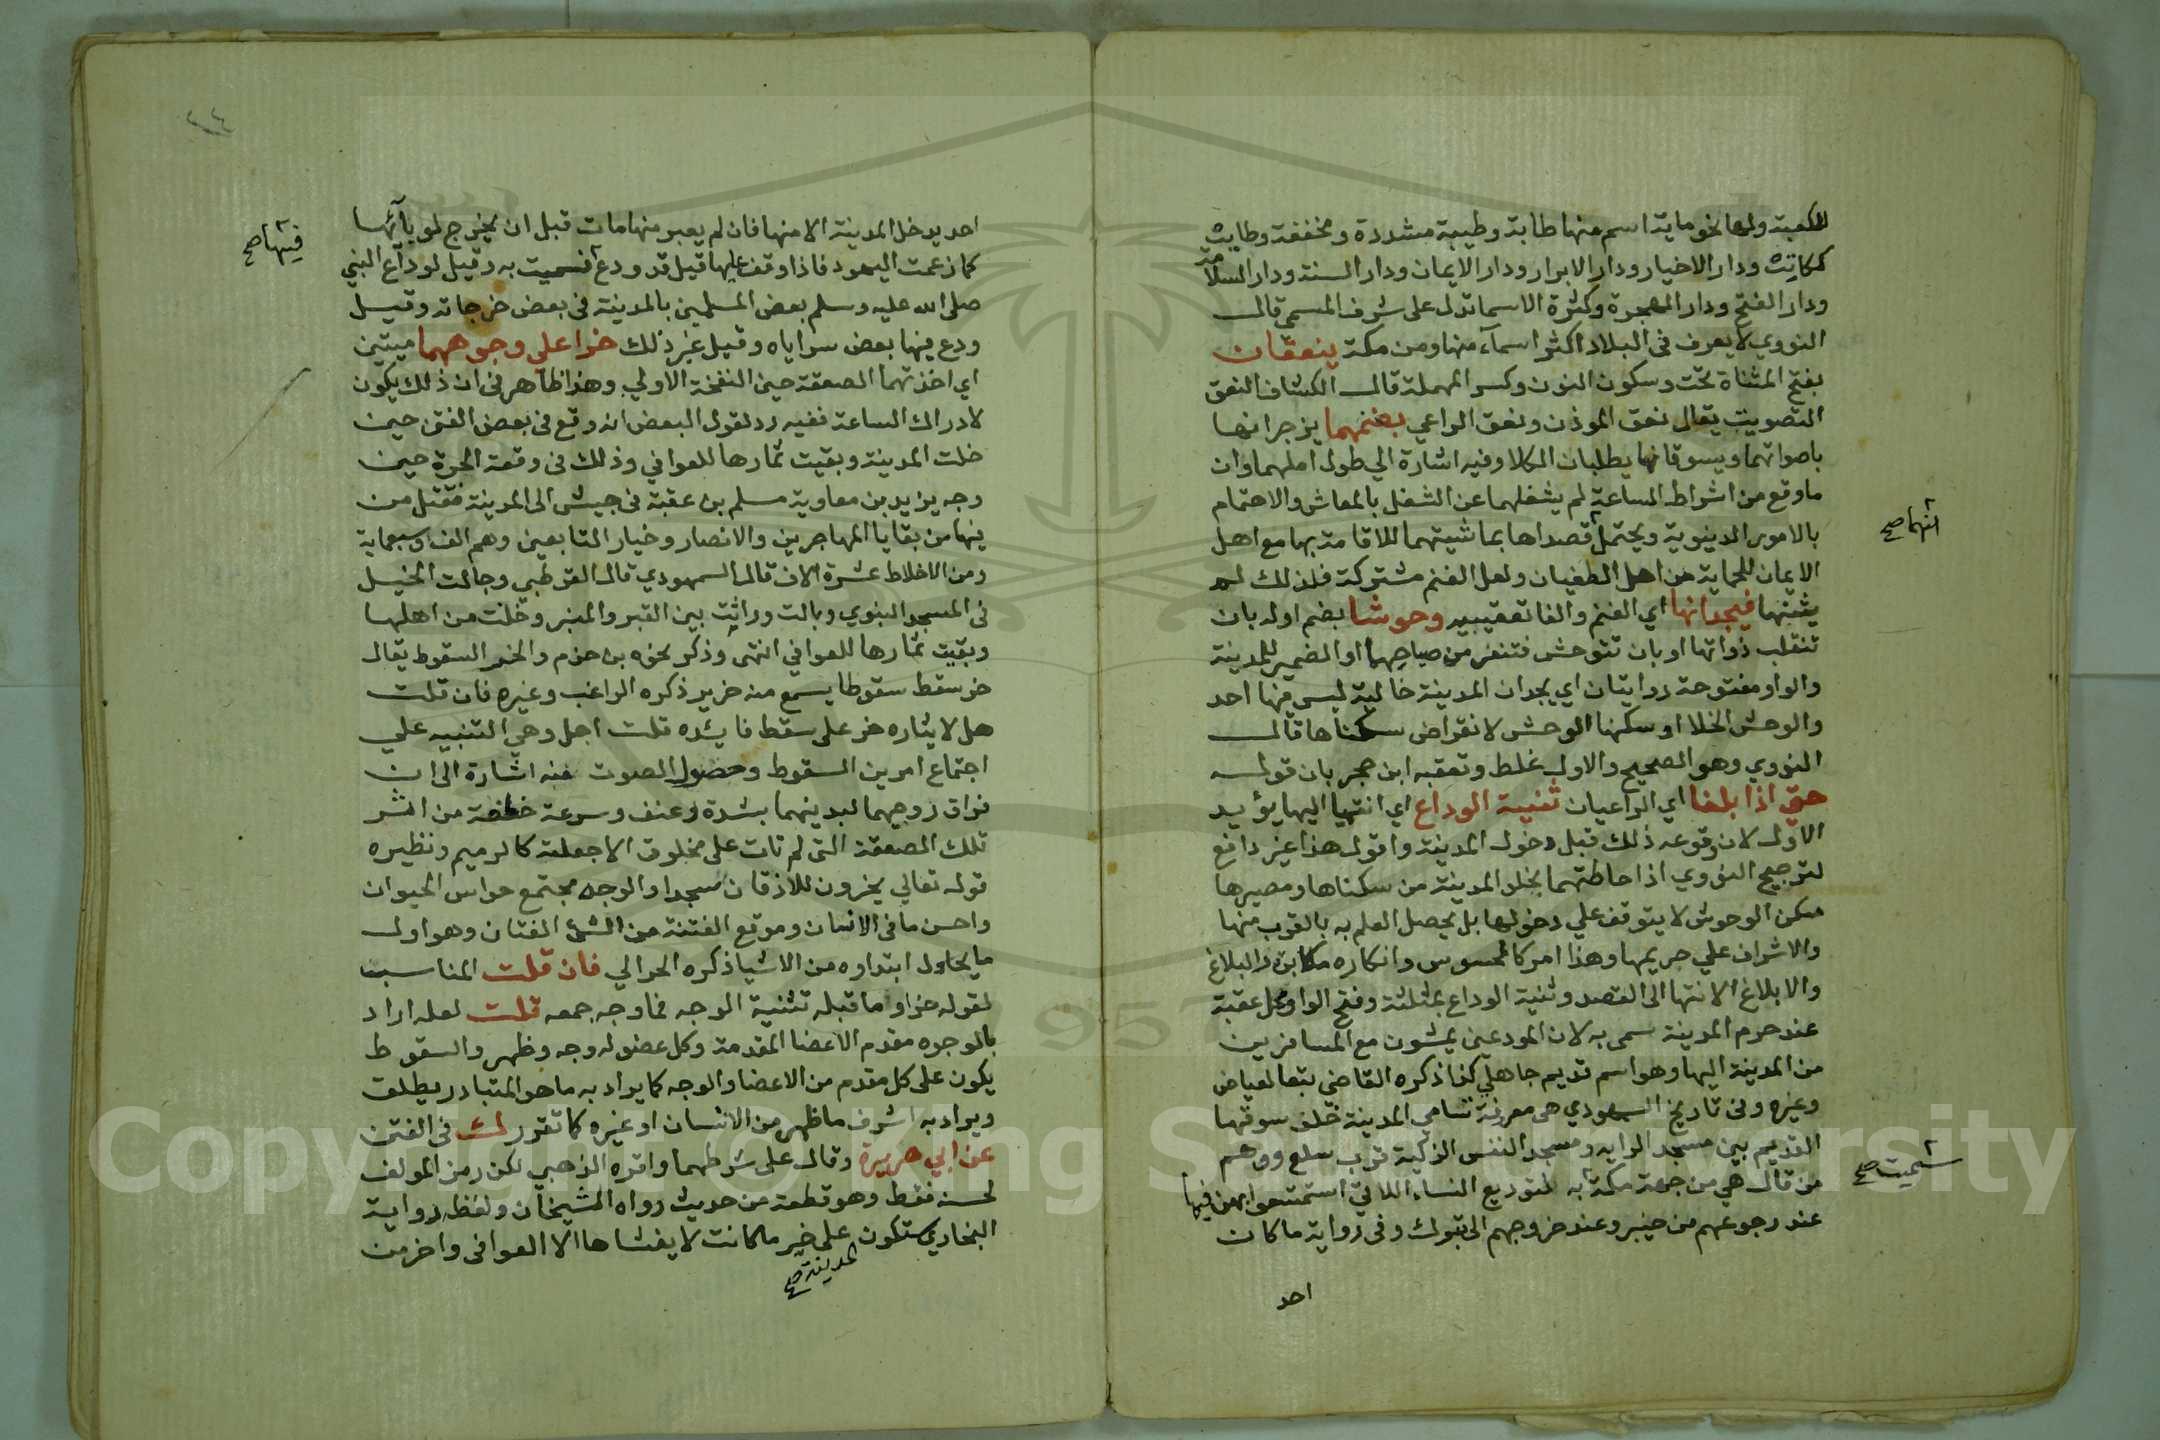 للكعبة ولها نحو ماية اسم منها طابة وطيبة مشددة ومخففة وطايب
ككاتب ودار الاخيار ودار الابرار ودار الايمان ودار السنة ودار السلامة
ودار الفتح ودار الهجرة وكثرة الاسما تدل على شرف المسمى قال
النووي لا يعرف في البلاد اكثر اسماء منها ومن مكة ينعقان
بفتح المثناة تحت وسكون النون وكسر المهملة قال الكشاف النعق
التصويت يقال نعق الموذن ونعق الراعي بغنمهما يزجرانها
باصواتهما ويسوقانها يطلبان الكلا وفيه اشارة الي طول املهما وان
ما وقع من اشراط الساعة لم يشغلهما عن الشغل بالمعاش والاحتمام
بالامور الدنيوية ويحتمل قصداها بماشيتهما للاقامة بها مع اهل
انهما صح
الايمان للحماية من اهل الطغيان ولعل الغنم مشتركة فلذلك لم
يثنها فيجدانها اي الغنم والفا تعقيبيه وحوشا بضم اوله بان
تنقلب ذواتها او بان تتوحش فتنفر من صياحهما او الضمير للمدينة
والواو مفتوحة روايتان اي يجدان المدينة خالية ليس فيها احد
والوحش الخلا او سكنها الوحش لانقراض سكناها قال
النووي وهو الصحيح والاول غلط وتعقبه ابن حجر بان قوله
حتى اذا بلغا اي الراعيان ثنية الوداع اي انتهيا اليها يؤيد
الاول لان وقوعه ذلك قبل دخول المدينة واقول هذا غير دافع
لترجيح النووي اذا حاطتهما بخلو المدينة من سكناها ومصيرها
مسكن الوحوش لا يتوقف علي دخولها بل يحصل العلم به بالقرب منها
والاشراف علي حريمها وهذا امر كالمحسوس وانكاره مكابرة والبلاغ
والابلاغ الانتها الى القصد وثنية الوداع بمثلثة وفتح الواو محل عقبة
عند حرم المدينة سمى به لان المودعين يمشون مع المسافرين
من المدينة اليها وهو اسم قديم جاهلي كذا ذكره القاضي تبعا لعياض
وغيره وفي تاريخ السمهودي هي معروفة شامي المدينة خلف سوقها
القديم بين مسجد الراية ومسجد النفس الزكية قرب سلع ووهم
من قال هي من جهة مكة به لتوديع النساء اللاتي استمتعوا بهن فيها
سميت صح
عند رجوعهم من خيبر وعند خروجهم الى تبوك وفي رواية ما كان
احد
احد يدخل المدينة الا منها فان لم يعبر منها مات قبل ان يخرج لوبائها
فيها صح
كما زعمت اليهود فاذا وقف عليها قيل قد ودع فسميت به وقيل لوداع النبي
صلى الله عليه وسلم بعض المسلمين بالمدينة في بعض خرجاته وقيل
ودع فيها بعض سراياه وقيل غير ذلك خرا علي وجوههما ميتين
اي اخذتهما الصعقة حين النفخة الاولي وهذا ظاهر في ان ذلك يكون
لادراك الساعة ففيه رد لقول البعض انه وقع في بعض الفتن حين
خلت المدينة وبقيت ثمارها للعوافي وذلك في وقعة الحرة حين
وجه يزيد بن معاوية مسلم بن عقبة في جيش الى المدينة فقتل من
فيها من بقايا المهاجرين والانصار وخيار التابعين وهم الف وسبعماية
ومن الاخلاط عشرة الاف قال السمهودي قال القرطبي وجالت الخيل
في المسجد النبوي وبالت وراثت بين القبر والمنبر وخلت من اهلها
وبقيت ثمارها للعوافي انتهى وذكر نحوه بن حزم والخر السقوط يقال
خر سقط سقوطا يسمع منه خرير ذكره الراغب وغيره فان قلت
هل لايثاره خر على سقط فايده قلت اجل وهي التنبيه علي
اجتماع امرين السقوط وحصول الصوت ففيه اشارة الى ان
فراق روحيهما لبدنهما بشدة وعنف وسرعة من اثر
تلك الصعقة التي لم تات على مخلوق الا جعلته كالرميم ونظيره
قوله تعالي يخرون للاذقان سجدا والوجه مجتمع حواس الحيوان
واحسن ما في الانسان وموقع الفتنة من الشئ الفتان وهو اول
ما يحاول ابتداوه من الاشيا ذكره الحرالي فان قلت المناسب
لقوله خرا وما قبله تثنية الوجه فما وجه جمعه قلت لعله اراد
بالوجوه مقدم الاعضا المقدمة وكل عضو له وجه وظهر والسقوط
يكون على كل مقدم من الاعضا والوجه كما يراد به ما هو المتبادر يطلق
ويراد به اشرف ما ظهر من الانسان او غيره كما تقرر ك في الفتن
عن ابي هريرة وقال على شرطهما واقره الذهبي لكن رمز المولف
لحسنه فقط وهو قطعة من حديث رواه الشيخان ولفظ رواية
البخاري ستكون على خير ما كانت لا يغشاها الا العوافي واخر من
المدينة صح
Copyright © King Saud University
1957